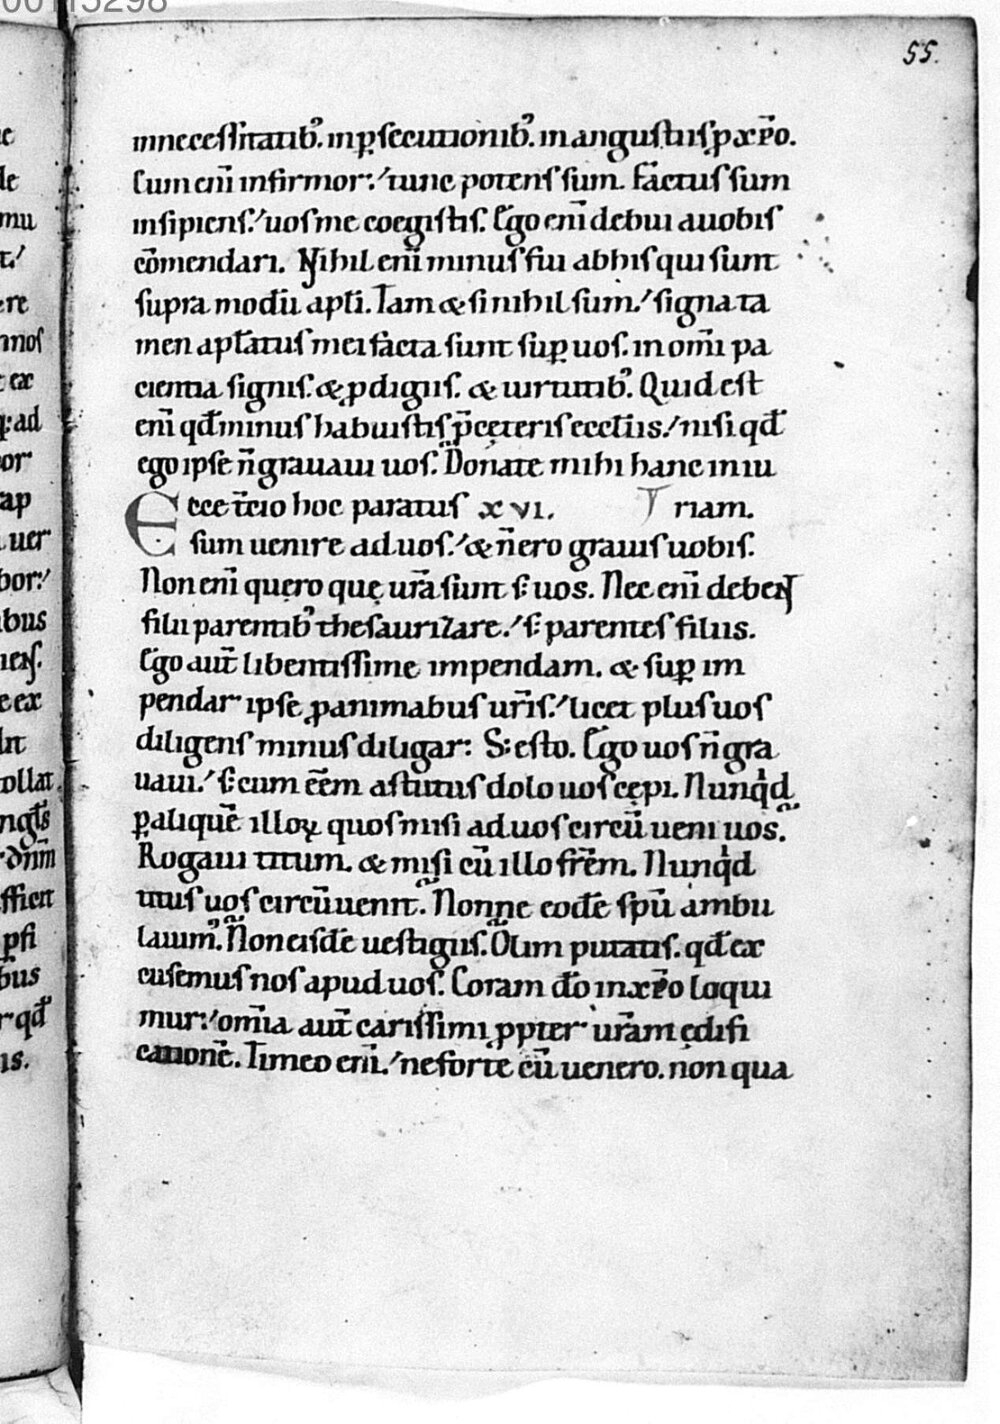 00115298
55.
innecessitatib᾽. inꝑsecutionib᾽. in angustiis ꝓ xp̄o.
Cum eni̅ infirmor:᾽ tunc potens sum. Factus sum
insipiens.᾽ uos me coegistis. Ego eni̅ debui a uobis
co̅mendari. Nihil eni̅ minus fui ab his qui sunt
supra modu̅ apłi. Tam & si nihil sum.᾽ signa ta
men apłatus mei facta sunt suꝑ uos. in om̅i pa
cientia signis. & ꝓdigiis. & uirtutib᾽. Quid est
eni̅ qđ minus habuistis p̅ cęteris ecclɫiis.᾽ nisi qđ
ego ipse n̅ grauaui uos. Donate mihi hanc iniu
Ecce t̅cio hoc paratus xvi. riam.
sum uenire ad uos.᾽ & n̅ ero grauis uobis.
Non eni̅ quęro quę ur̅a sunt s: uos. Nec eni̅ debeɴt
filii parentib᾽ thesaurizare.᾽ s: parentes filiis.
Ego aut̅ libentissime impendam. & suꝑ im
pendar ipse ꝓ animabus ur̅is.᾽ licet plus uos
diligens minus diligar: S: esto. Ego uos n̅ gra
uaui.᾽ s: cum ee̅m astutus dolo uos cępi. Nunqd
ꝑ alique̅ illoꝝ quos misi ad uos circu̅ueni uos.
Rogaui titum. & misi cu̅ illo fr̅em. Nunqd
titus uos circu̅uenit. Nonne eode̅ spu̅ ambu
lauim᾽. Non eisde̅ uestigiis. Olim putatis. qđ ex
cusemus nos apud uos. Coram đo in xp̄o loqui
mur:᾽ om̅ia aut̅ carissimi ꝓpter ur̅am ędifi
catione̅. Timeo eni̅.᾽ ne forte cu̅ uenero. non qua